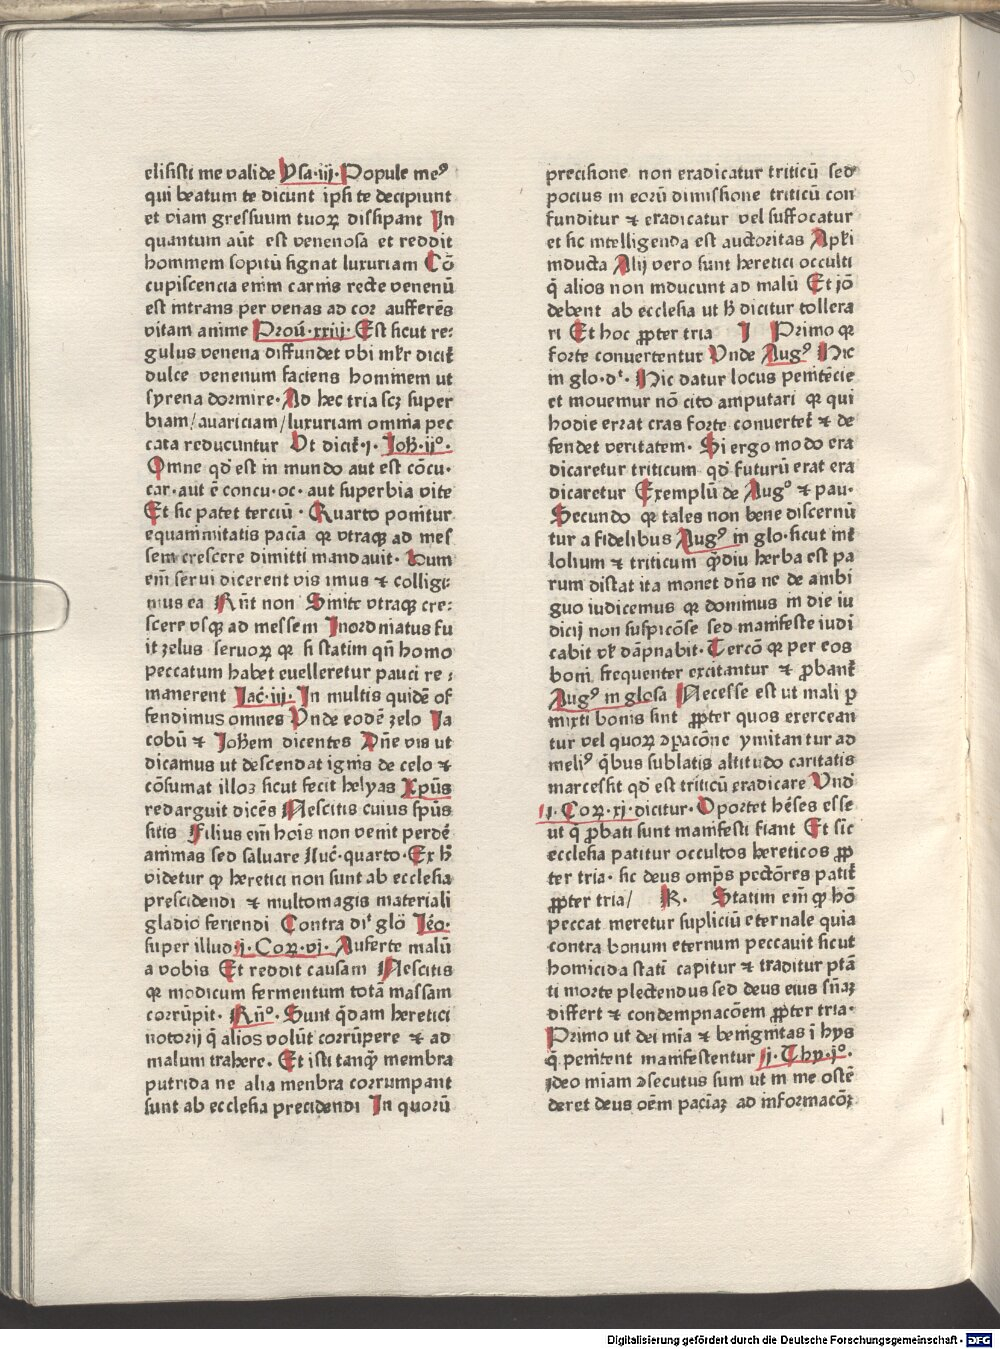 elisisti me valide Ysa·iij·Popule meꝰ
qui beatum te dicunt ipsi te decipiunt
et viam gressuum tuoꝝ dissipant In
quantum aūt est venenosa et reddit
hominem sopitū signat luxuriam Cō
cupiscencia enim carnis recte venenū
est intrans per venas ad cor aufferēs
vitam anime Proū·xxiij·Est sicut re⸗
gulus venena diffundet vbi
dulce venenum faciens hominem ut
syrena dormire·Ad hec tria scꝫ super
biam/avariciam/luxuriam omnia pec
cata reducuntur Ut dicit͛·j·Joh̄·ijº·
Omne qd̄ est in mundo aut est cōcu·
car·aut ē concu·oc·aut superbia vite
Et sic patet terciū·Quarto ponitur
equanimitatis pacia qꝛ vtraqꝫ ad mes
sem crescere dimitti mandauit·Cum
em̄ serui dicerent vis imus ⁊ colligi⸗
mus ea Rn̄t non Sinite vtraqꝫ cre⸗
scere vsqꝫ ad messem Inordinatus fu
it zelus seruoꝝ qꝛ si statim qn̄ homo
peccatum habet euelleretur pauci re⸗
manerent Jac̄·iij·In multis quidē of
fendimus omnes Unde eodē zelo Ja
cobū ⁊ Joh̄em dicentes Dn̄e vis ut
dicamus ut descendat ignis de celo ⁊
cōsumat illos sicut fecit helyas Xp̄us
redarguit dicēs Nescitis cuius sp̄us
sitis Filius em̄ hoīs non venit perdē
animas sed saluare Luc̄·quarto·Ex h̄
videtur ꝙ heretici non sunt ab ecclesia
prescidendi ⁊ multomagis materiali
gladio feriendi Contra di͛ glō Jēo·
super illud·j·Coꝝ·vj·Auferte malū
a vobis Et reddit causam Nescitis
qꝛ modicum fermentum totā massam
corrūpit·Rn̄º·Sunt q̄dam heretici
notorij q̄ alios volūt corrūpere ⁊ ad
malum trahere·Et isti tanq̄ membra
putrida ne alia menbra corrumpant
sunt ab ecclesia precidendi In quorū
precisione non eradicatur triticū sed
pocius in eorū dimissione triticū con
funditur ⁊ eradicatur vel suffocatur
et sic intelligenda est auctoritas Ap̄li
inducta Alij vero sunt heretici occulti
q̄ alios non inducunt ad malū Et iō
debent ab ecclesia ut h̄ dicitur tollera
ri Et hoc ꝓpter tria J Primo qꝛ
forte conuertentur Unde Augꝰ Hic
in glo·d͛·Hic datur locus penitēcie
et mouemur nō cito amputari qꝛ qui
hodie errat cras forte conuertet͛ ⁊ de
fendet veritatem·Si ergo modo era
dicaretur triticum qd̄ futurū erat era
dicaretur Exemplū de Augº ⁊ pau·
Secundo qꝛ tales non bene discernū
tur a fidelibus Augꝰ in glo·sicut int͛
lolium ⁊ triticum q̄diu herba est pa
rum distat ita monet dn̄s ne de ambi
guo iudicemus qꝛ dominus in die iu
dicij non suspicōse sed manifeste iudi
cabit vl͛ dāpnabit·Tercō qꝛ per eos
boni frequenter excitantur ⁊ ꝓbant͛
Augꝰ in glosa Necesse est ut mali ꝑ
mixti bonis sint ꝓpter quos exercean
tur vel quoꝝ ꝯpacōne ymitantur ad
meliꝰ q̄bus sublatis altitudo caritatis
marcessit qd̄ est triticū eradicare Und̄
j·Coꝝ·xj·dicitur·Oportet hēses esse
ut q̄ ꝓbati sunt manifesti fiant Et sic
ecclesia patitur occultos hereticos ꝓp
ter tria·sic deus omp̄s pctōres patit͛
ꝓpter tria/ R· Statim em̄ ꝙ hō
peccat meretur supliciū eternale quia
contra bonum eternum peccauit sicut
homicida statī capitur ⁊ traditur ptā
ti morte plectendus sed deus eius sn̄aꝫ
differt ⁊ condempnacōem ꝓpter tria·
Primo ut dei mīa ⁊ benignitas ī hys
q̄ penitent manifestentur j·Thy·jº·
ideo mīam ꝯsecutus sum ut in me ostē
deret deus oēm paciaꝫ ad informacōꝫ
Digitalisierung gefördert durch die Deutsche Forschungsgemeinschaft · DFG